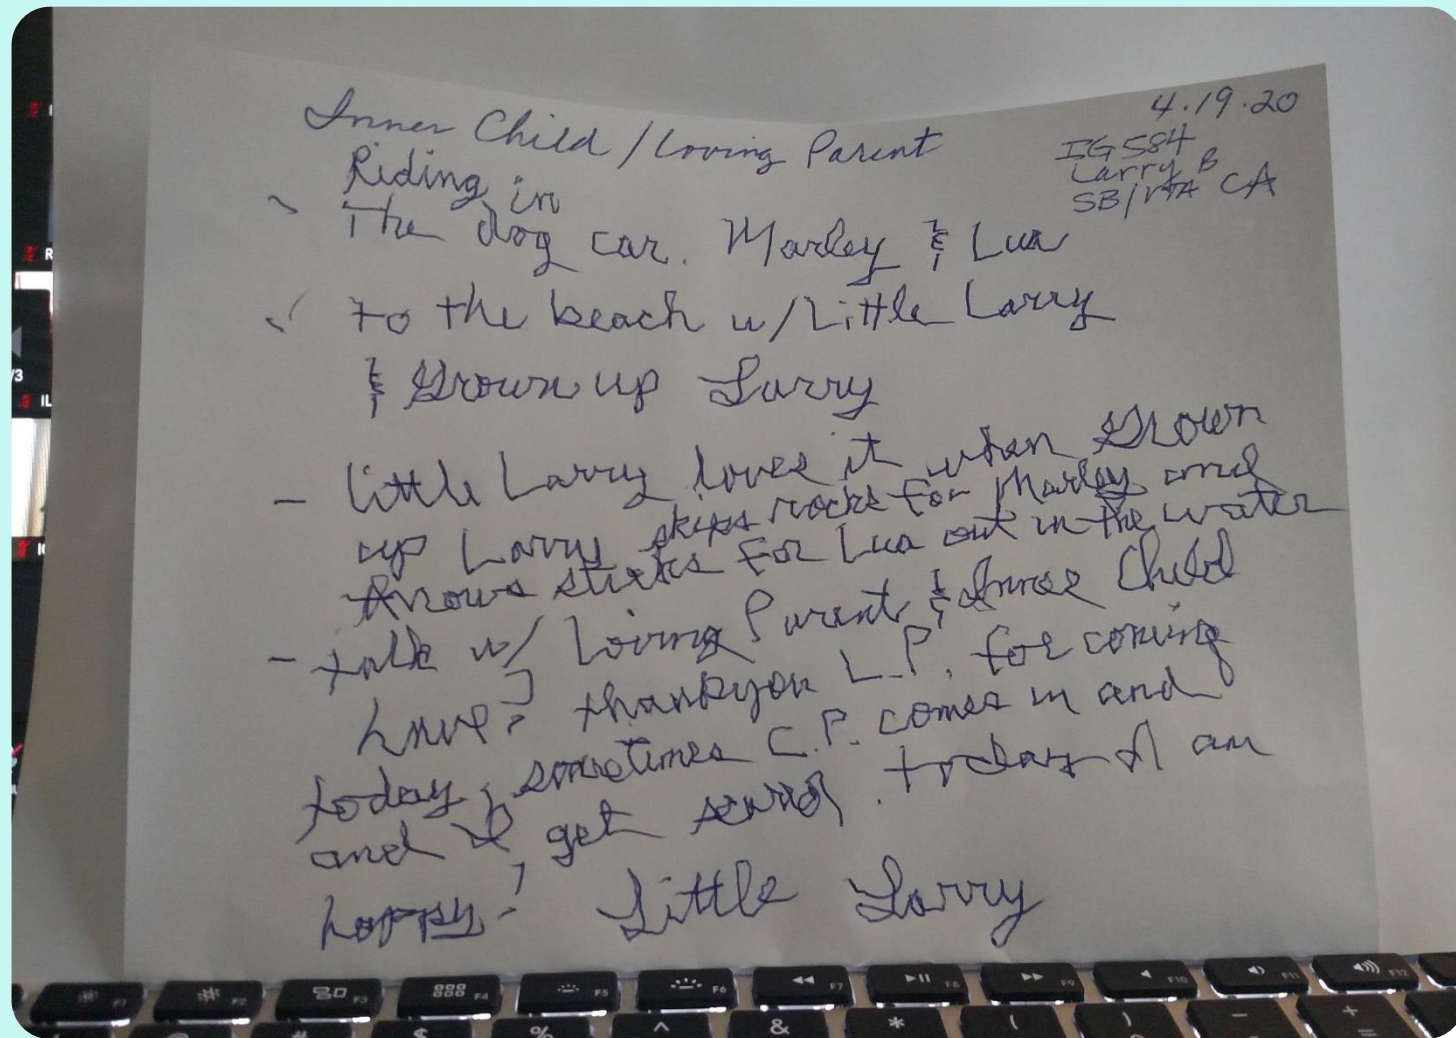 Inner Child / Loving Parent
4.19.20
IG 584
Larry B
SB/VTA CA
Riding in
The dog car. Marley & Lua
to the beach w/Little Larry
& Grown up Larry
- little Larry loves it when Grown
up Larry skips rocks for Marley and
throws sticks for Lua out in the water
- talk w/ Loving Parent & Inner Child
have? thankyou L.P. for coming
today, sometimes C.P. comes in and
and I get scared. today I am
happy! Little Larry
F1
F2
F3
F4
F5
F6
F7
F8
F9
F10
F11
F12
# $ % ^ & * ( ) - + =